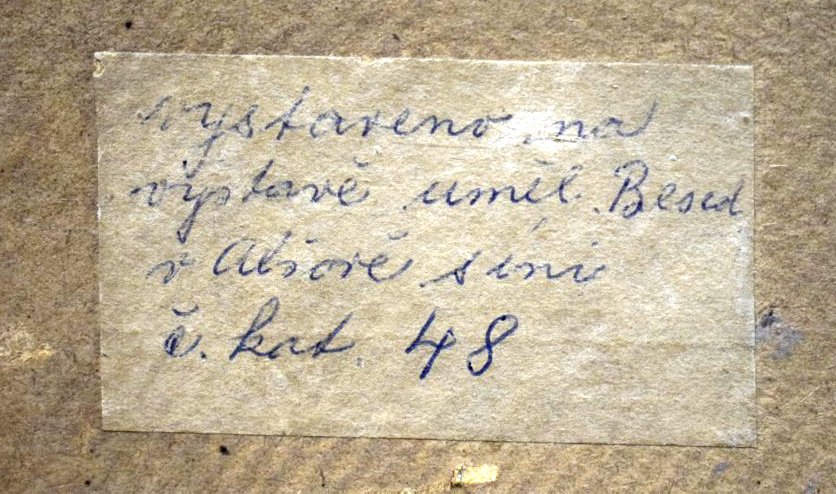 vystaveno na
výstavě uměl. Besed
v Alšově síni
č. kat. 48